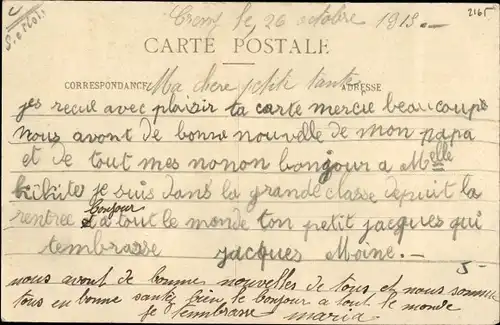 le, 26 octobre 1915.-
2165
CARTE POSTALE
CORRESPONDANCE
ADRESSE
Ma chere petite tante
jes recue avec plaisir ta carte mercie beaucoup
nous avont de bonne nouvelle de mon papa
et de tout mes nonon bonjour a Melle
je suis dans la grande classe depuit la
rentree bonjour a tout le monde ton petit jacques qui
tembrasse jacques Moine.-
nous avont de bonne nouvelles de tous et nous somme
tous en bonne santé bien le bonjour a tout le monde
je tembrasse maria